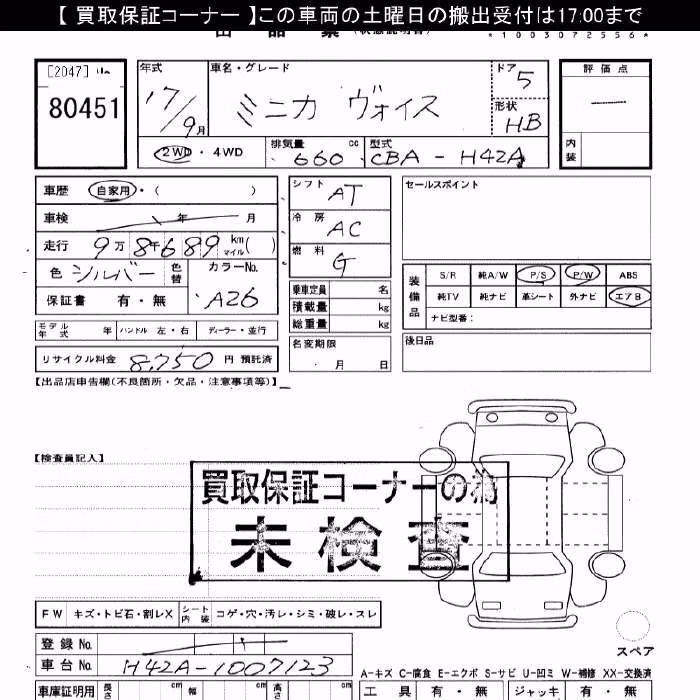 【 買取保証コーナー 】この車両の土曜日の搬出受付は17:00まで
*1003072556*
[2047]
80451
年式 17/9月
車名・グレード ミニカ ヴォイス
ドア 5
形状 HB
評価点 —
内装
2WD・4WD
排気量 660 cc
型式 CBA-H42A
車歴 自家用・( )
車検 年 月
走行 9万8千689 km マイル( )
色 シルバー 色替
カラーNo. A26
保証書 有・無
モデル年式 年 ハンドル 左・右 ディーラー・並行
リサイクル料金 8,750 円 預託済
シフト AT
冷房 AC
燃料 G
乗車定員 名
積載量 kg
総重量 kg
名変期限 月 日
セールスポイント
装備品
S/R 純A/W P/S P/W ABS
純TV 純ナビ 革シート 外ナビ エアB
ナビ型番:
後日品
【出品店申告欄(不良箇所・欠品・注意事項等)】
【検査員記入】
買取保証コーナーの為
未検査
FW キズ・トビ石・割レX シート内装 コゲ・穴・汚レ・シミ・破レ・スレ
スペア
登録 No.
車台 No. H42A-1007123
A-キズ C-腐食 E-エクボ S-サビ U-凹ミ W-補修 XX-交換済
車庫証明用 長さ cm 幅 cm 高さ cm
工具 有・無 ジャッキ 有・無